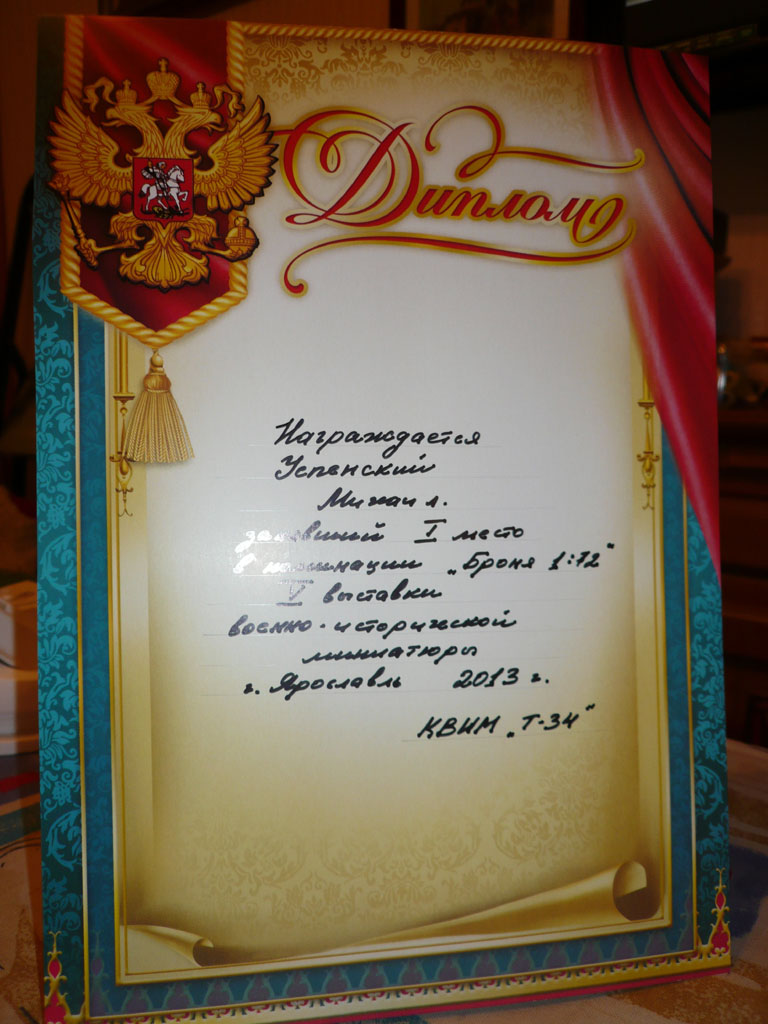 Диплом
Награждается
Успенский
Михаил.
занявший I место
в номинации „Броня 1:72"
V выставки
военно-исторической
миниатюры
г. Ярославль 2013 г.
КВИМ „Т-34"